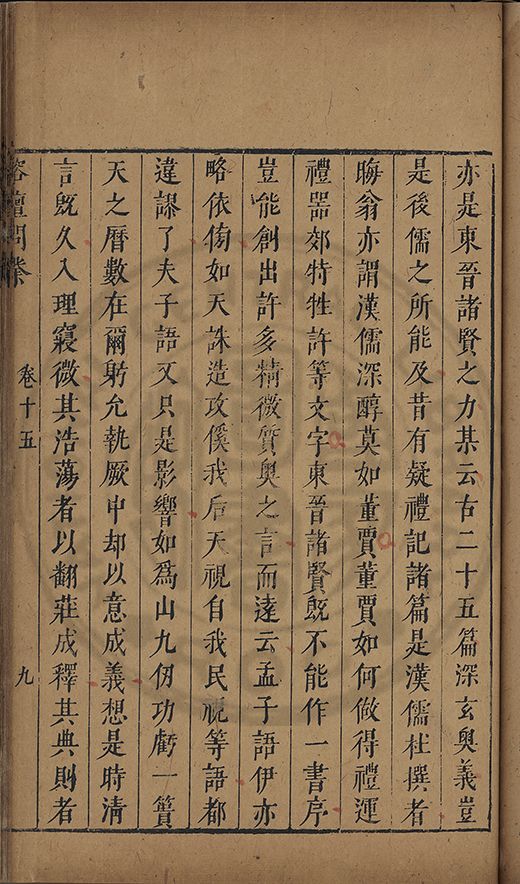 亦是東晉諸賢之力某云古二十五篇深玄奧義豈
是後儒之所能及昔有疑禮記諸篇是漢儒杜撰者
晦翁亦謂漢儒深醇莫如董賈董賈如何做得禮運
禮器郊特牲許等文字東晉諸賢既不能作一書序
豈能創出許多精微質奧之言而逺云孟子語伊亦
略依傍如天誅造攻徯我后天視自我民視等語都
違謬了夫子語又只是影響如爲山九仞功虧一簣
天之曆數在爾躬允執厥中却以意成義想是時清
言既久入理寖微其浩蕩者以翻莊成釋其典則者
榕壇問業
卷十五
九